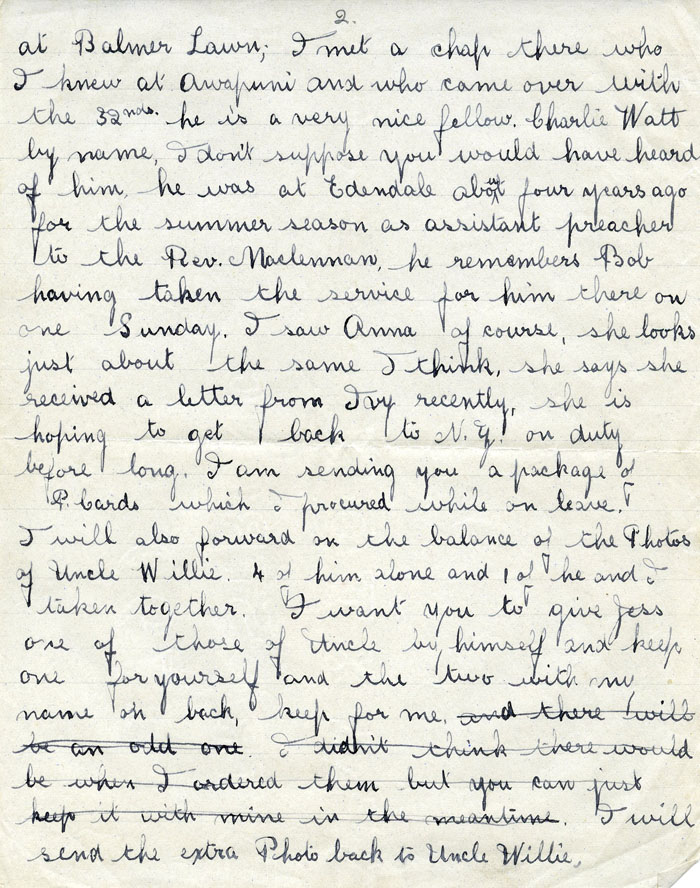 2.
at Balmer Lawn; I met a chap there who
I knew at Awapuni and who came over with
the 32nds. he is a very nice fellow. Charlie Watt
by name, I don't suppose you would have heard
of him, he was at Edendale about four years ago
for the summer season as assistant preacher
to the Rev. Maclennan, he remembers Bob
having taken the service for him there on
one Sunday. I saw Anna of course, she looks
just about the same I think, she says she
received a letter from Ivy recently, she is
hoping to get back to N.Z. on duty
before long. I am sending you a package of
P. Cards which I procured while on leave.
I will also forward on the balance of the Photos
of Uncle Willie. 4 of him alone and 1 of he and I
taken together. I want you to give Jess
one of those of Uncle by himself and keep
one for yourself and the two with my
name on back, keep for me. and there will
be an odd one. I didn't think there would
be when I ordered them but you can just
keep it with mine in the meantime. I will
send the extra Photo back to Uncle Willie.